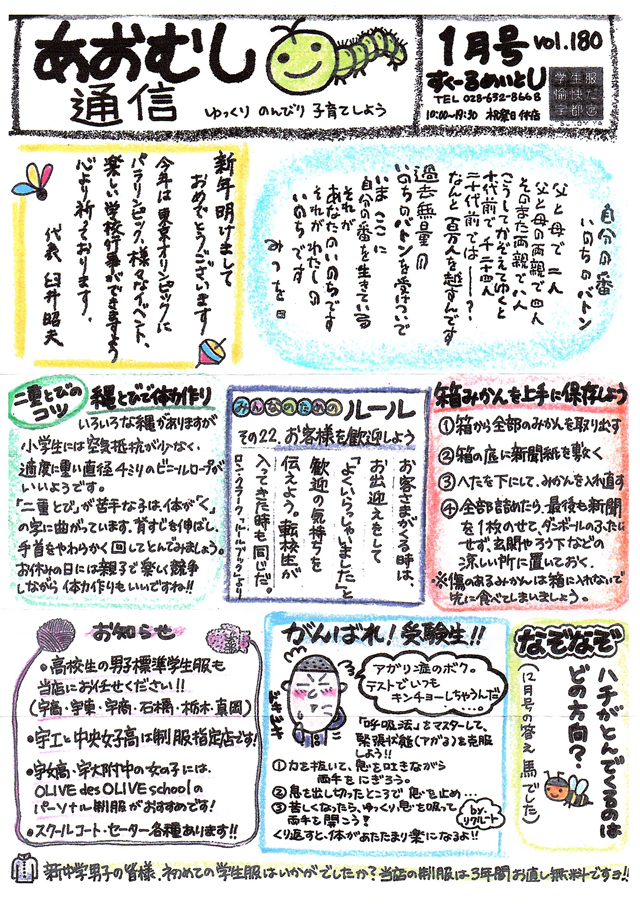 あおむし
通信
ゆっくり のんびり 子育てしよう
1月号 vol.180
すくーるめいとU
TEL 028-652-8668
10:00〜19:30 水曜日休店
学生服
愉快だ
宇都宮
新年明けまして
おめでとうございます
今年は東京オリンピックに
パラリンピック、様々なイベント、
楽しい学校行事ができますよう
心より祈えております。
代表 臼井昭夫
自分の番
いのちのバトン
父と母で二人
父と母の両親で四人
そのまた両親で八人
こうしてかぞえてゆくと
十代前で、千二十四人
二十代前では――?
なんと百万人を越すんです
過去無量の
いのちのバトンを受けついで
いまここに
自分の番を生きている
それが
あなたのいのちです
それがわたしの
いのちです
みつを
二重とびの
コツ
縄とびで体力作り
いろいろな縄がありますが
小学生には空気抵抗が少なく、
適度に重い直径4ミリのビニールロープが
いいようです。
「二重とび」が苦手な子は、体が「く」
の字に曲がっています。背すじを伸ばし、
手首をやわらかく回してとんでみましょう。
お休みの日には親子で楽しく競争
しながら体力作りもいいですね!!
みんなのための ルール
その22.お客様を歓迎しよう
お客さまがくる時は、
お出迎えをして
「よくいらっしゃいました」と
歓迎の気持ちを
伝えよう。転校生が
入ってきた時も同じだ。
ロン・クラーク「ルールブック」より
箱みかんを上手に保存しよう
①箱から全部のみかんを取り出す
②箱の底に新聞紙を敷く
③へたを下にして、みかんを入れ直す
④全部詰めたら、最後も新聞
を1枚のせて、ダンボールのふたは
せず、玄関やろう下などの
涼しい所に置いておく.
※傷のあるみかんは箱に入れないで
先に食べてしまいましょう。
お知らせ
•高校生の男子標準学生服も
当店にお任せください!!
(宇高・宇東・宇商・石橋・栃木・真岡)
•宇工と中央女子高は制服指定店です!
•宇女高・宇大附中の女の子には、
OLIVE des OLIVE schoolの
パーソナル制服がおすすめです!
•スクールコート・セーター各種あります!!
がんばれ!受験生!!
アガリ症のボク。
テストでいつも
キンチョーしちゃうんだ…
ドキドキ
「呼吸法」をマスターして、
緊張状態(アガる)を克服
しよう!!
①力を抜いて、息を吐きながら
両手をにぎろう。
②息を出し切ったところで息を止め…
③苦しくなったら、ゆっくり息を吸って
両手を開こう!
くり返すと、体があたたまり楽になるよ!!
by.リクルート
なぞなぞ
ハチがとんでくるのは
どの方向?
(12月号の答え 馬でした)
新中学男子の皆様、初めての学生服はいかがでしたか?当店の制服は3年間お直し無料ですヨ!!